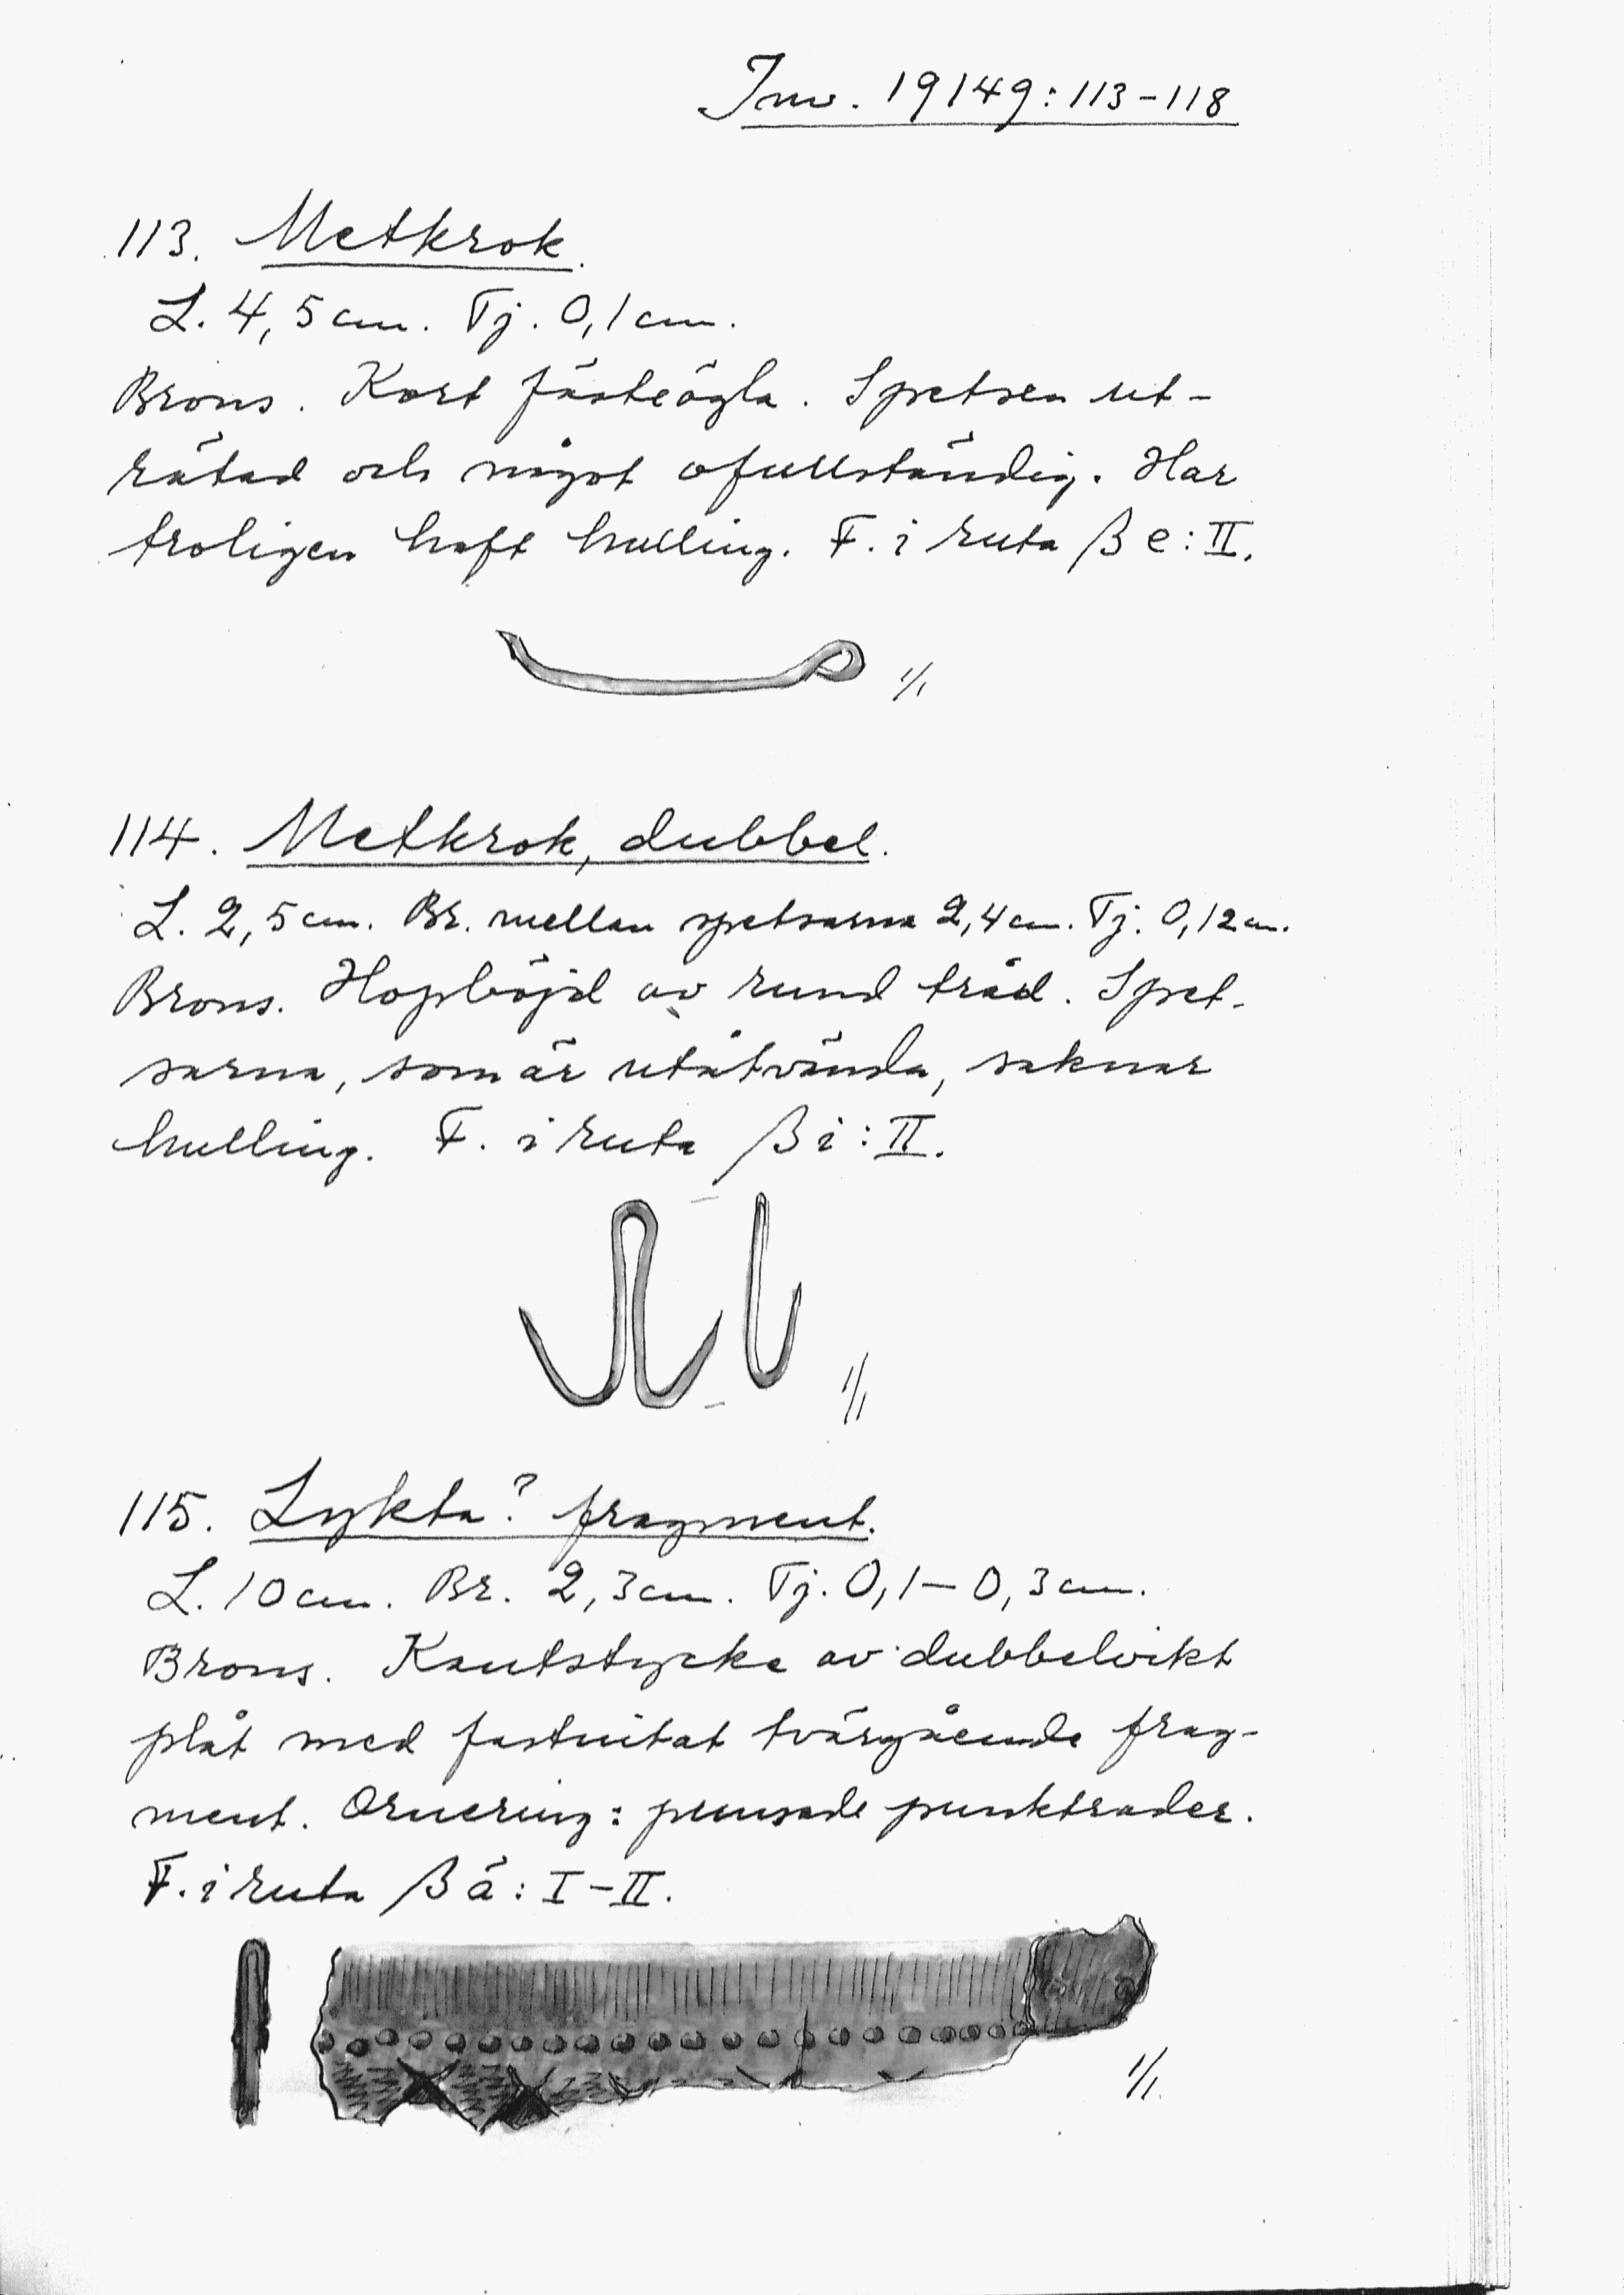 Inv. 19149:113-118
113. Metkrok.
L. 4,5 cm. Tj. 0,1 cm.
Brons. Kort fästeögla. Spetsen ut-
rätad och något ofullständig. Har
troligen haft hulling. F. i ruta β e: II.
1/1
114. Metkrok, dubbel.
L. 2,5 cm. Br. mellan spetsarna 2,4 cm. Tj. 0,12 cm.
Brons. Hopböjd av rund tråd. Spet-
sarna, som är utåtvända, saknar
hulling. F. i ruta β i: II.
1/1
115. Lykta? fragment.
L. 10 cm. Br. 2,3 cm. Tj. 0,1-0,3 cm.
Brons. Kantstycke av dubbelvikt
plåt med fastnitat tvärgående frag-
ment. Ornering: punsade punktrader.
F. i ruta β ä: I-II.
1/1.